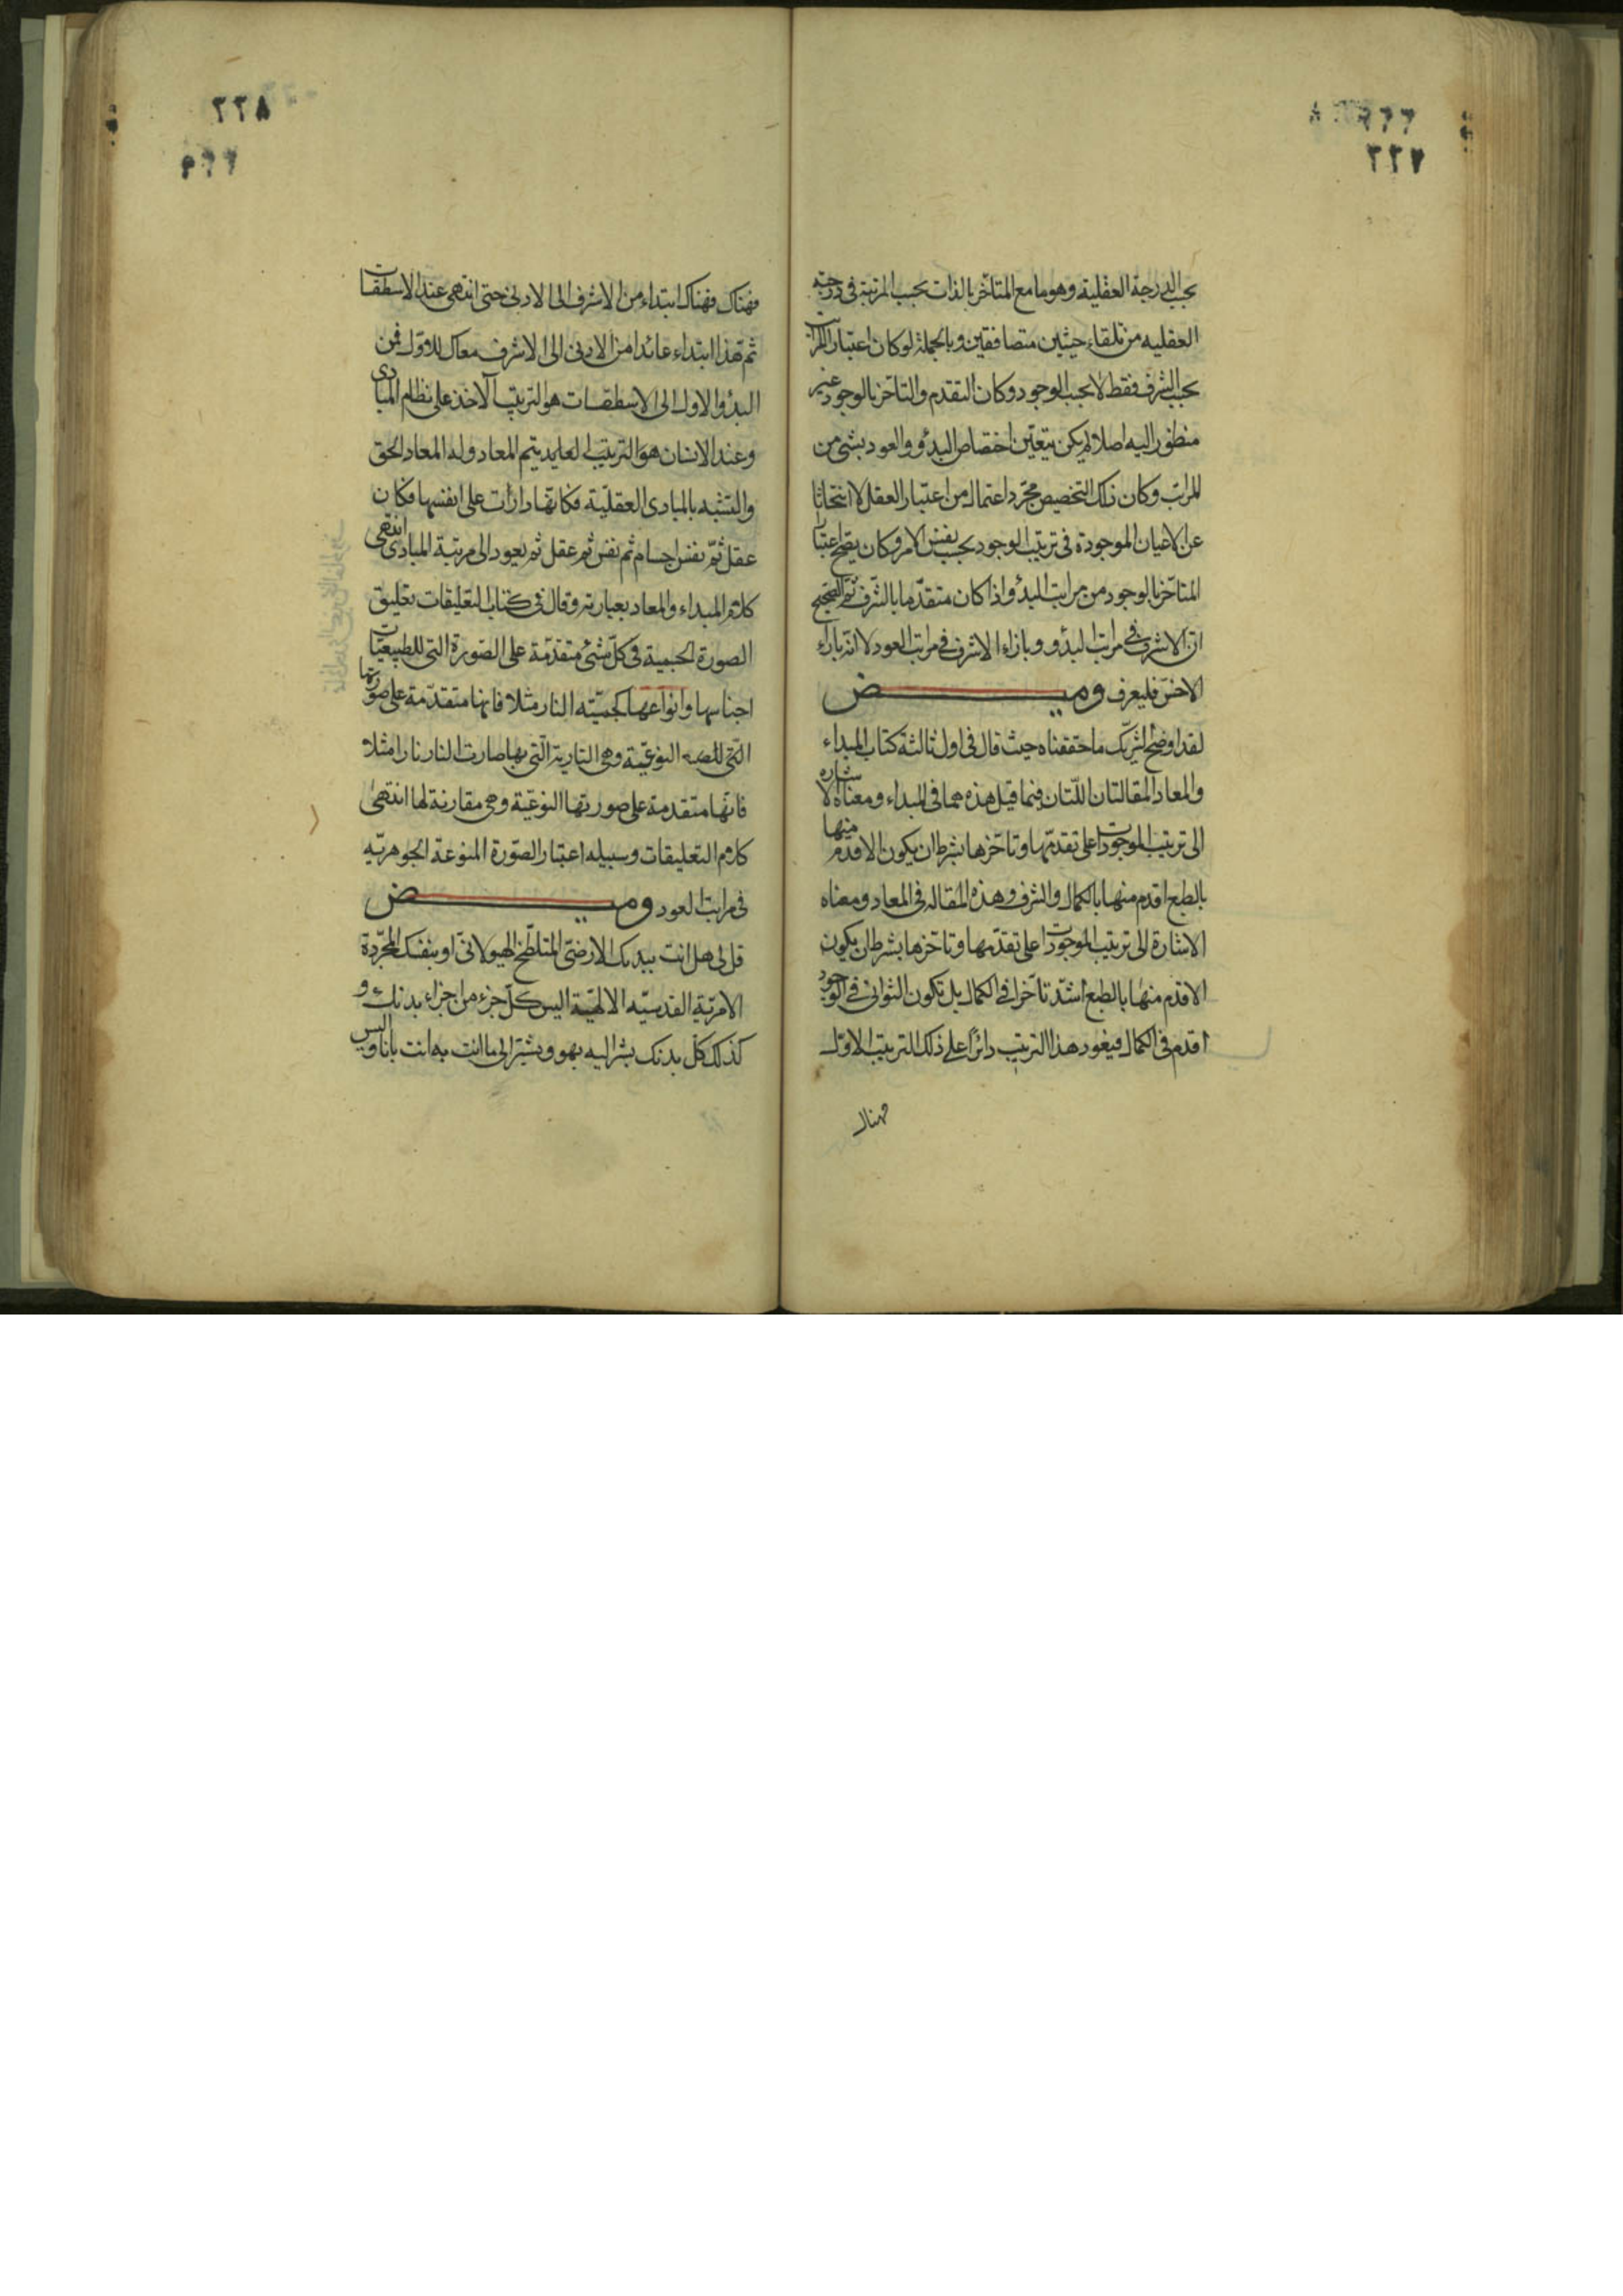 ٢٢٧
بحسب الدرجة العقلية وهو ما مع المتأخر بالذات بحسب المرتبة فى درجته
العقليه من تلقاء حيثيتين متصافقتين وبالجملة لو كان اعتبار المراتب
بحسب الشرف فقط لا بحسب الوجود وكان التقدم والتأخر بالوجود غير
منظور اليه اصلا لم يكن يتعين اختصاص البدؤ والعود بشئ من
المراتب وكان ذلك التخصيص مجرد اعتمال من اعتبار العقل لا
عن الاعيان الموجودة فى ترتيب الوجود بحسب نفس الامر وكان يصح اعتبار
المتأخر بالوجود من مراتب البدؤ اذا كان متقدما بالشرف ثم الصحيح
ان الاشرف فى مراتب البدؤ و بازاء الاشرف فى مراتب العود لا انه بازاء
الاخس فليعرف وميض
لقد اوضح الشريك ما حققناه حيث قال فى اول ثالثة كتاب المبداء
والمعاد المقالتان اللتان فيما قبل هذه هما فى المبداء ومعناه الاشاره
الى ترتيب الموجودات على تقدمها وتأخرها بشرط ان يكون الاقدم منها
بالطبع اقدم منها بالكمال والشرف وهذه المقاله فى المعاد ومعناه
الاشارة الى ترتيب الموجودات على تقدمها وتأخرها بشرط ان يكون
الاقدم منها بالطبع اشد تأخرا فى الكمال بل تكون الثوانى فى الوجود
اقدم فى الكمال فيعود هذا الترتيب دائرا على ذلك الترتيب الاول
فهناك
٢٢٨
٢٢٩
فهناك فهناك ابتداء من الاشرف الى الادنى حتى انتهى عند الاسطقسات
ثم هذا ابتداء عائدا من الادنى الى الاشرف معاكسا للاول فمن
البدؤ الاول الى الاسطقسات هو الترتيب الآخذ على نظام المبادى
وعند الانسان هو الترتيب العايد يتم المعاد وله المعاد الحق
والتشبه بالمبادى العقلية فكانها دارات على انفسها فكان
عقل ثم نفس اجسام ثم نفس ثم عقل ثم يعود الى مرتبة المبادى انتهى
كلام المبداء والمعاد بعبارته وقال فى كتاب التعليقات تعليق
الصورة الجسمية فى كل شئ متقدمة على الصورة التى للطبيعيات
اجناسها وانواعها كجسميته النار مثلا فانها متقدمة على صورتها
النوعية وهى النارية التى بها صارت النار نارا مثلا
فانها متقدمة على صورتها النوعية وهى مقارنة لها انتهى
كلام التعليقات وسبيله اعتبار الصورة المنوعة الجوهرية
فى مراتب العود وميض
قل لى هل انت ببدنك الارضى المتلطخ الهيولانى او بنفسك المجردة
الامرية القدسيه الالهية اليس كل جزء من اجزاء بدنك و
كذلك كل بدنك يشر اليه بهو ويشير الى ما انت به انت بانا وليس